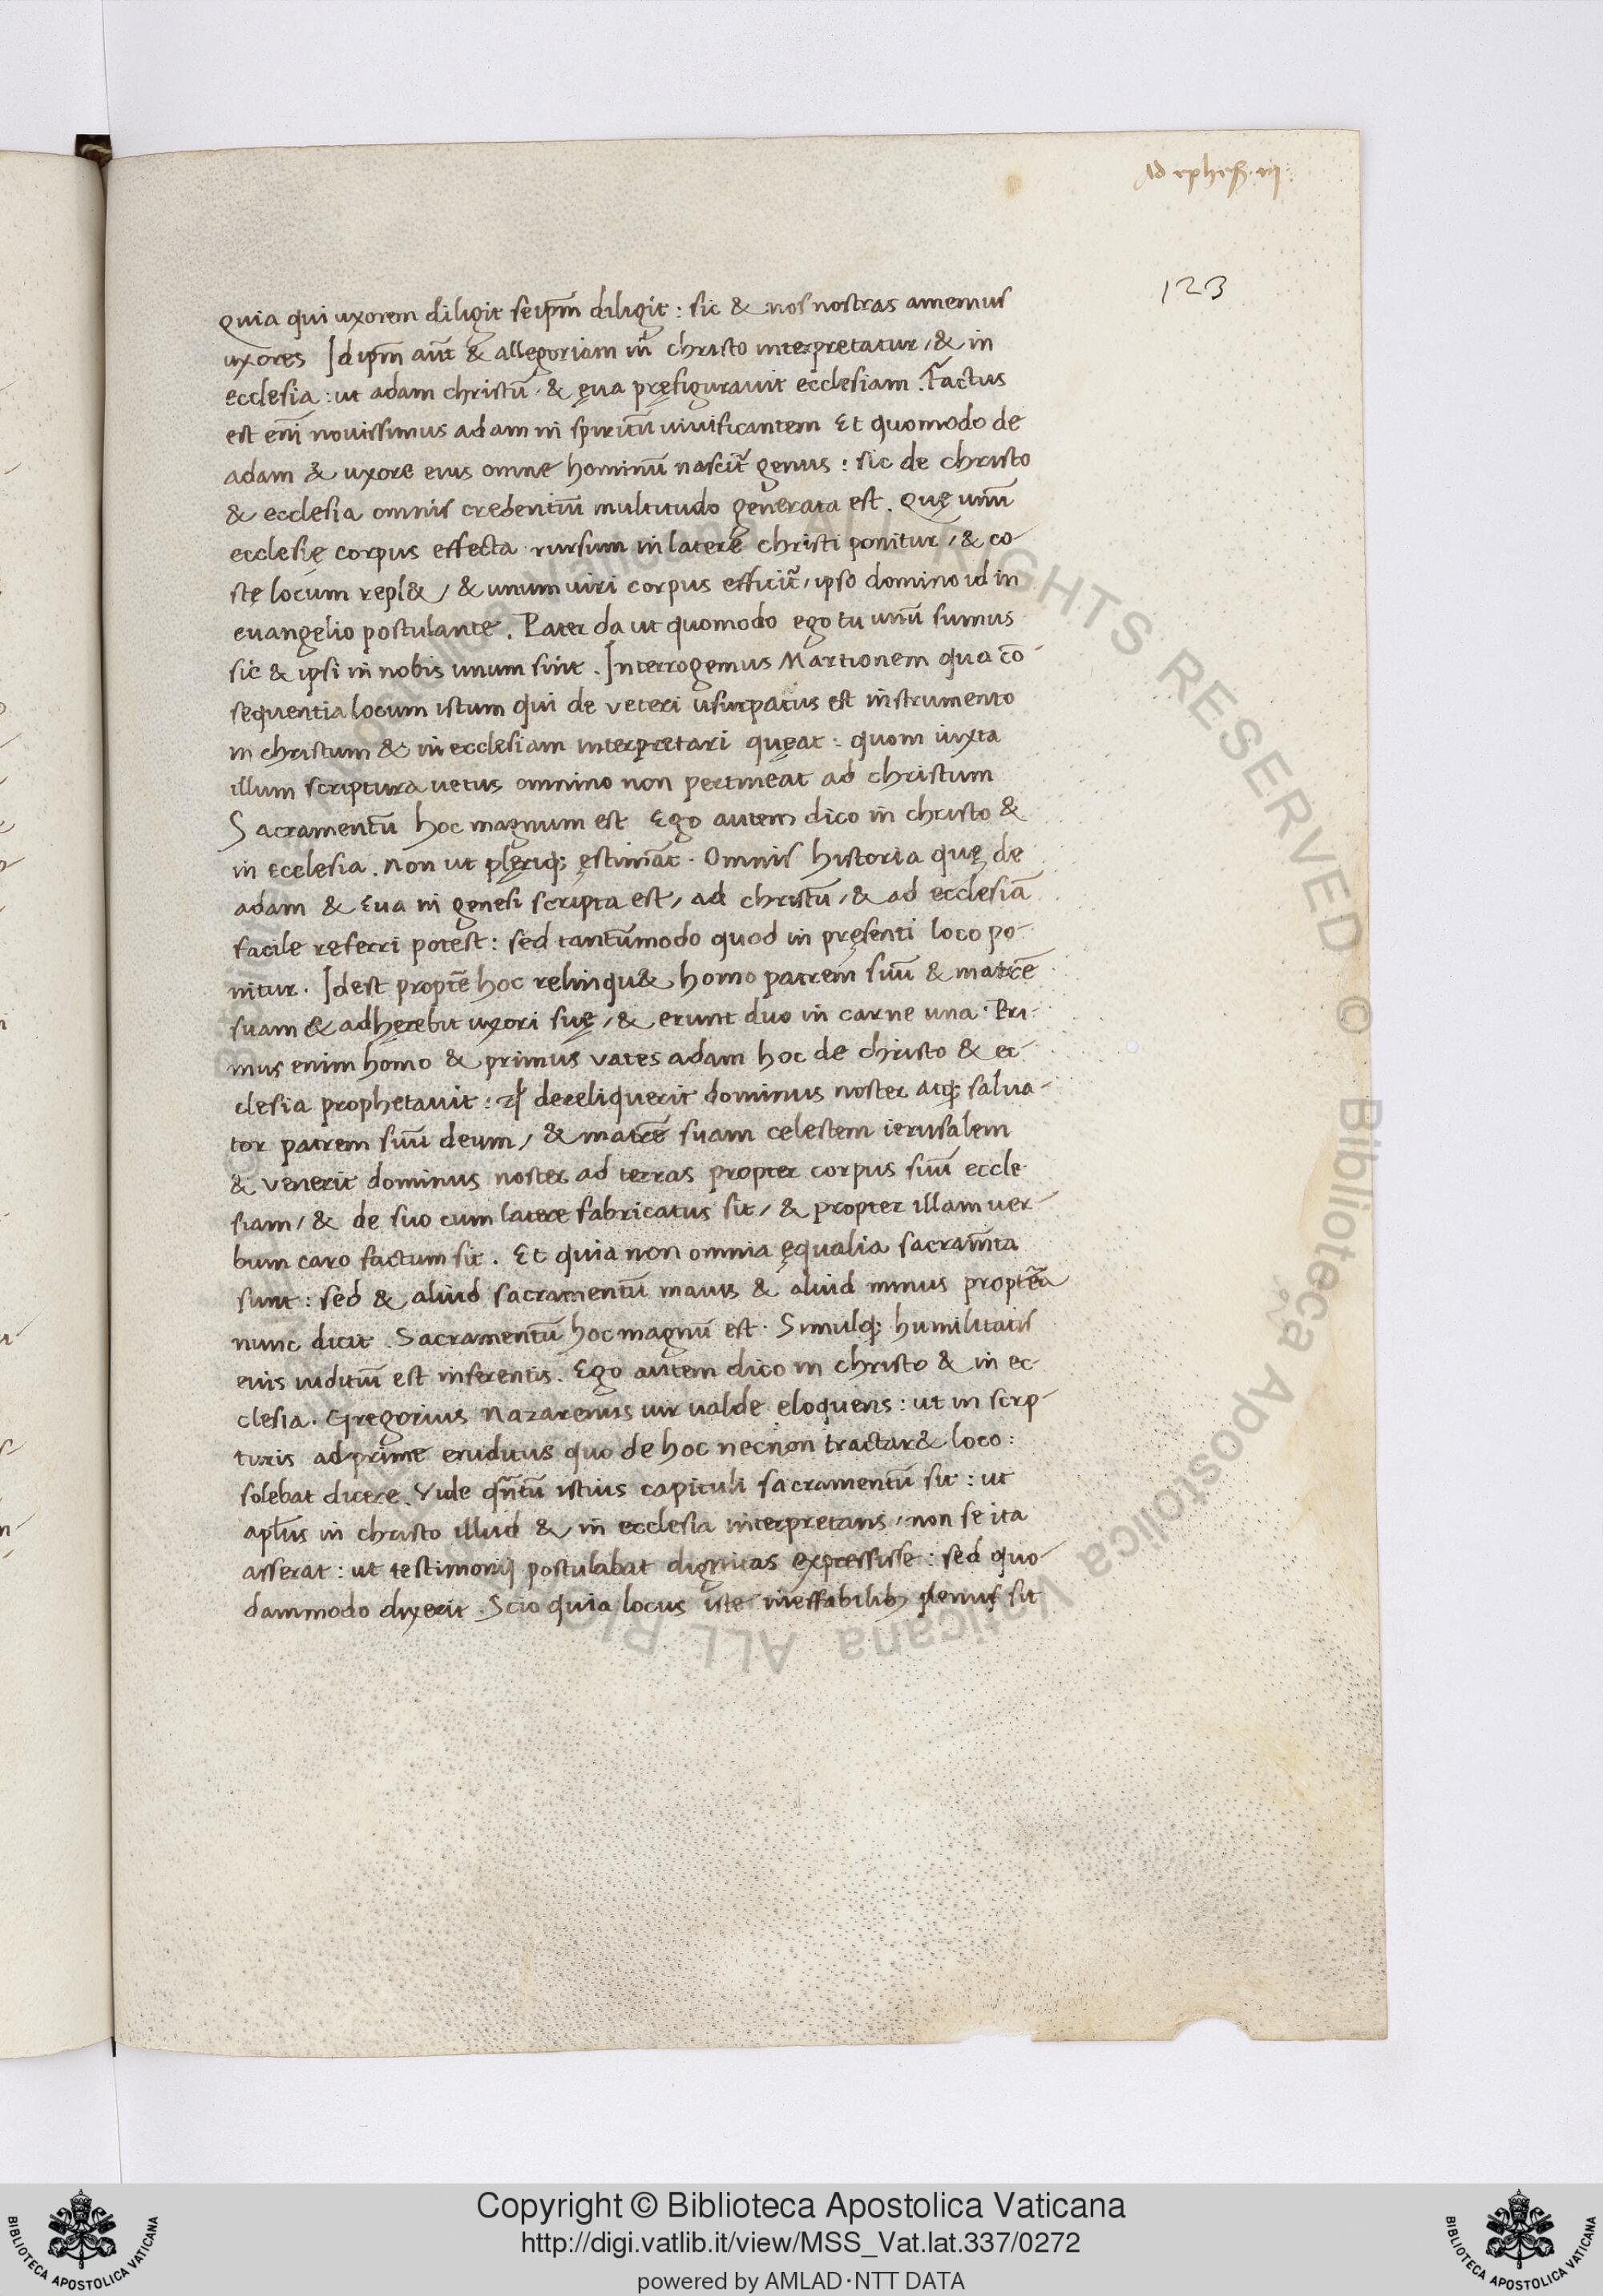 Ad ephes. iij.
123
Quia qui uxorem diligit seipm̄ diligit: sic & nos nostras amemus
uxores Idipm̄ aūt & allegoriam in christo interpretatur, & in
ecclesia: ut adam christū. & ęua pręfigurauit ecclesiam. Factus
est enī nouissimus adam in spiritū uiuificantem Et quomodo de
adam & uxore eius omne hominū nascit̄ genus: sic de christo
& ecclesia omnis credentiū multitudo generata est. Quę unū
ecclesię corpus effecta rursum in latere christi ponitur, & co-
stę locum repl&, & unum uiri corpus efficit̄, ipso domino id in
euangelio postulante. Pater da ut quomodo ego tu unū sumus
sic & ipsi in nobis unum sint. Interrogemus Martionem qua cō-
sequentia locum istum qui de veteri usurpatus est instrumento
in christum & in ecclesiam interpretari quęat: quom iuxta
illum scriptura uetus omnino non pertineat ad christum
Sacramentū hoc magnum est Ego autem dico in christo &
in Ecclesia. Non ut plęriq; ęstimāt. Omnis historia quę de
adam & Eua in genesi scripta est, ad christū, & ad ecclesiā
facile referri potest: sed tantūmodo quod in pręsenti loco po-
nitur. Idest proptē hoc relinqu& homo patrem suū & matrē
suam & adhęrebit uxori suę, & erunt duo in carne una. Pri-
mus enim homo & primus vates adam hoc de christo & ec-
clesia prophetauit: dereliquerit dominus noster atq; salua-
tor patrem suū deum, & matrē suam celestem ierusalem
& venerit dominus noster ad terras propter corpus suū eccle-
siam, & de suo cum latere fabricatus sit, & propter illam uer-
bum caro factum sit. Et quia non omnia ęqualia sacram̄ta
sunt: sed & aliud sacramentū maius & aliud minus propt̄ea
nunc dicit. Sacramentū hoc magnū est. Simulq; humilitatis
eius iuditiū est inferentis. Ego autem dico in christo & in ec-
clesia. Gregorius Nazarenus uir ualde eloquens: ut in scrip-
turis adprime eruditus quo de hoc necnon tractar& loco:
solebat dicere. Vide qn̄tū istius capituli sacramentū sit: ut
apl̄us in christo illud & in ecclesia interpretans, non se ita
asserat: ut testimonij postulabat dignitas expressisse: sed quo-
dammodo dixerit. Scio quia locus iste ineffabilib; plenus sit
© Biblioteca Apostolica Vaticana ALL RIGHTS RESERVED
Copyright © Biblioteca Apostolica Vaticana
http://digi.vatlib.it/view/MSS_Vat.lat.337/0272
powered by AMLAD·NTT DATA
BIBLIOTECA APOSTOLICA VATICANA
BIBLIOTECA APOSTOLICA VATICANA